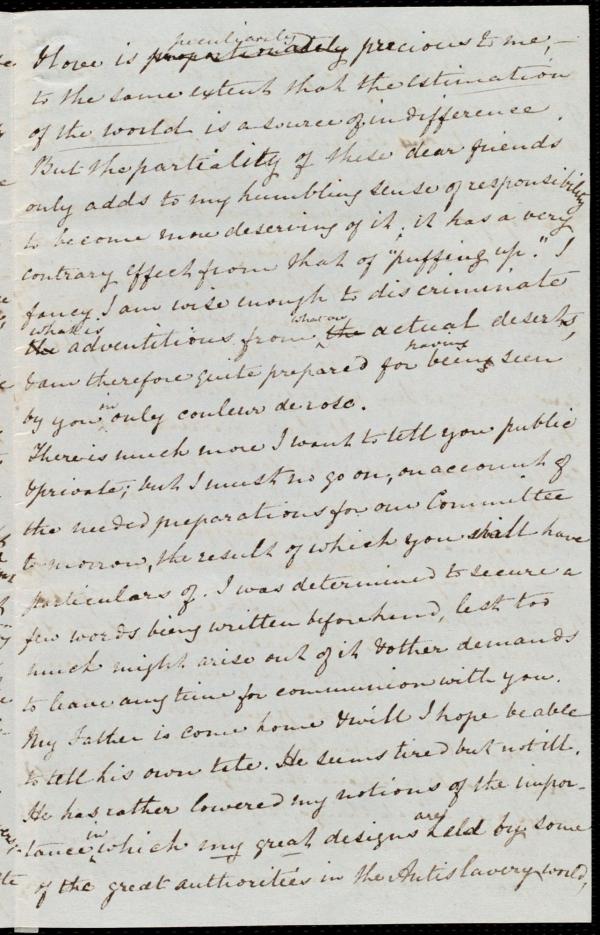 & love is peculiarly proportionately precious to me,—
to the same extent that the estimation
of the world is a source of indifference.
But the partiality of these dear friends
only adds to my humbling sense of responsibility
to become more deserving of it; it has a very
contrary effect from that of "puffing up." I
fancy I am wise enough to discriminate
what is the adventitious from what are the actual deserts,
& am therefore quite prepared for having being seen
by you in only couleur de rose.
There is much more I want to tell you public
& private; but I must no go on, on account of
the needed preparations for our Committee
tomorrow, the result of which you shall have
particulars of. I was determined to secure a
few words being written beforehand, lest too
much might arise out of it & other demands
to leave any time for communion with you.
My Father is come home & will I hope be able
to tell his own tale. He seems tired but not ill.
He has rather lowered my notions of the impor-
tance in which my great designs are held by some
of the great authorities in the Antislavery world,